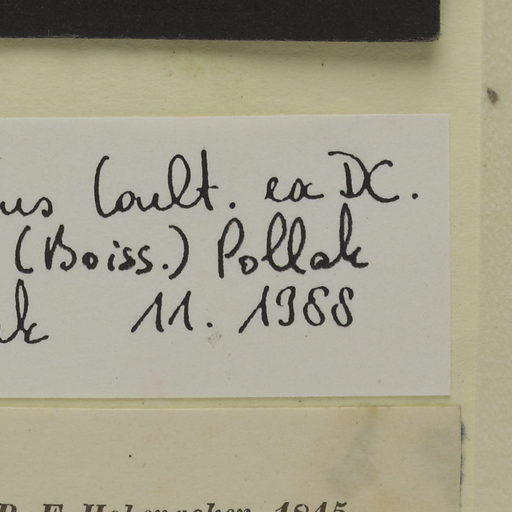 us Coult. ex DC.
(Boiss.) Pollak
ak 11. 1988
R. F. Hohenacker. 1845.